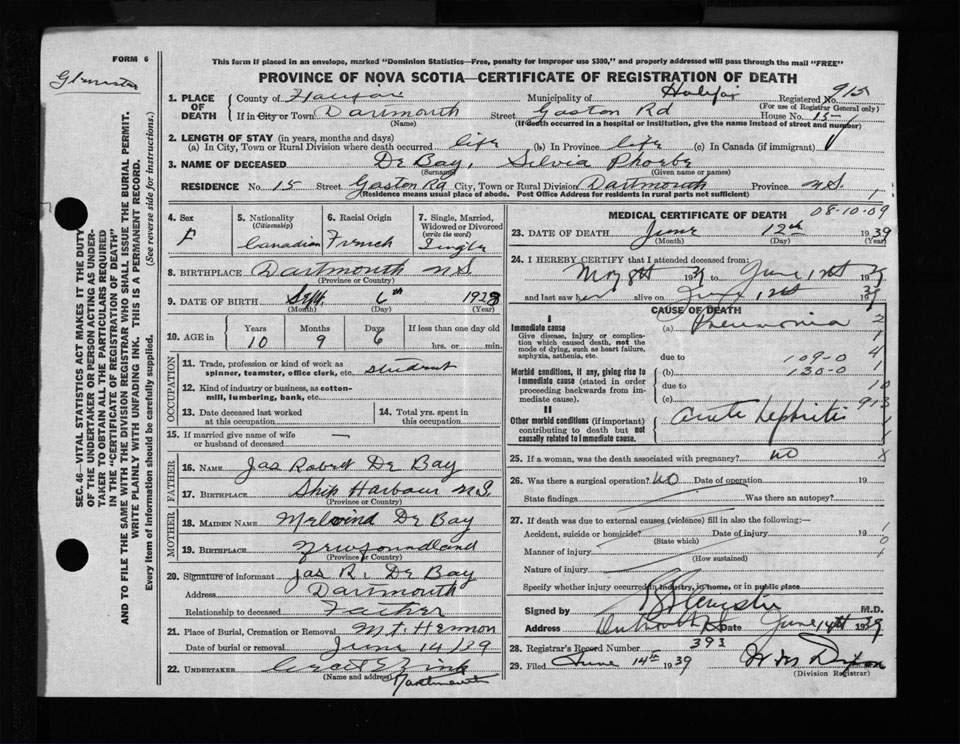 FORM 6
This form if placed in an envelope, marked "Dominion Statistics—Free, penalty for improper use $300," and properly addressed will pass through the mail "FREE"
PROVINCE OF NOVA SCOTIA—CERTIFICATE OF REGISTRATION OF DEATH
915
1. PLACE OF DEATH County of Halifax Municipality of Halifax Registered No.
(For use of Registrar General only)
If in City or Town Dartmouth Street Gaston Rd House No. 15
(Name) (If death occurred in a hospital or institution, give the name instead of street and number)
2. LENGTH OF STAY (in years, months and days)
(a) In City, Town or Rural Division where death occurred life (b) In Province life (c) In Canada (if immigrant)
3. NAME OF DECEASED De Bay, Silvia Phoebe
(Surname) (Given name or names)
RESIDENCE No. 15 Street Gaston Rd City, Town or Rural Division Dartmouth Province N.S.
(Residence means usual place of abode. Post Office Address for residents in rural parts not sufficient)
4. Sex F
5. Nationality (Citizenship) Canadian
6. Racial Origin French
7. Single, Married, Widowed or Divorced (write the word) Single
8. BIRTHPLACE Dartmouth N S
(Province or Country)
9. DATE OF BIRTH Sept 6th 1928
(Month) (Day) (Year)
10. AGE in Years Months Days If less than one day old
10 9 6 hrs. or min.
OCCUPATION
11. Trade, profession or kind of work as spinner, teamster, office clerk, etc. student
12. Kind of industry or business, as cotton-mill, lumbering, bank, etc.
13. Date deceased last worked at this occupation
14. Total yrs. spent in this occupation
15. If married give name of wife or husband of deceased —
FATHER
16. NAME Jas Robert De Bay
17. BIRTHPLACE Ship Harbour N.S.
(Province or Country)
MOTHER
18. MAIDEN NAME De Bay
19. BIRTHPLACE Newfoundland
(Province or Country)
20. Signature of informant Jas R. De Bay
Address Dartmouth
Relationship to deceased Father
21. Place of Burial, Cremation or Removal Mt Hermon
Date of burial or removal June 14/39
22. UNDERTAKER
(Name and address) Dartmouth
MEDICAL CERTIFICATE OF DEATH 08-10-09
23. DATE OF DEATH June 12th 1939
(Month) (Day) (Year)
24. I HEREBY CERTIFY that I attended deceased from:
May 8th 39 to June 12th 1939
and last saw her alive on June 12th 1939
CAUSE OF DEATH
I
Immediate cause (a) Pneumonia 2
Give disease, injury or complication which caused death, not the mode of dying, such as heart failure, asphyxia, asthenia, etc.
due to 109-0
Morbid conditions, if any, giving rise to immediate cause (stated in order proceeding backwards from immediate cause). (b) 130-0
due to 10
(c) 913
II
Other morbid conditions (if important) contributing to death but not causally related to immediate cause. Acute Nephritis
25. If a woman, was the death associated with pregnancy? No
26. Was there a surgical operation? No Date of operation 19
State findings Was there an autopsy?
27. If death was due to external causes (violence) fill in also the following:—
Accident, suicide or homicide? Date of injury 19
(State which)
Manner of injury
(How sustained)
Nature of injury
Specify whether injury occurred in industry, in home, or in public place
Signed by M.D.
Address Dartmouth NS Date June 14th 1939
28. Registrar's Record Number 393
29. Filed June 14th 1939
(Division Registrar)
SEC. 46—VITAL STATISTICS ACT MAKES IT THE DUTY
OF THE UNDERTAKER OR PERSON ACTING AS UNDER-
TAKER TO OBTAIN ALL THE PARTICULARS REQUIRED
IN THE "CERTIFICATE OF REGISTRATION OF DEATH"
AND TO FILE THE SAME WITH THE DIVISION REGISTRAR WHO SHALL ISSUE THE BURIAL PERMIT.
WRITE PLAINLY WITH UNFADING INK. THIS IS A PERMANENT RECORD.
Every item of information should be carefully supplied. (See reverse side for instructions.)